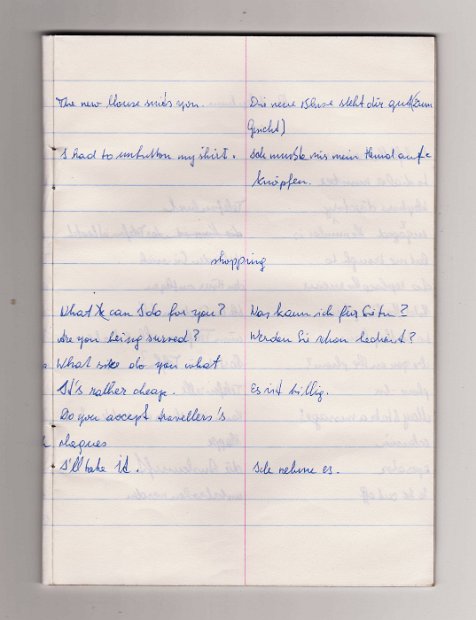 The new blouse suits you. Die neue Bluse steht dir gut (zum
Gesicht)
I had to unbutton my shirt. Ich mußte mir mein Hemd auf=
knöpfen.
shopping
What can I do for you? Was kann ich für Sie tun?
Are you being surved? Werden Sie schon bedient?
What size do you what
It's rather cheap. Es ist billig.
Do you accept travellers's
cheques
I'll take it. Ich nehme es.